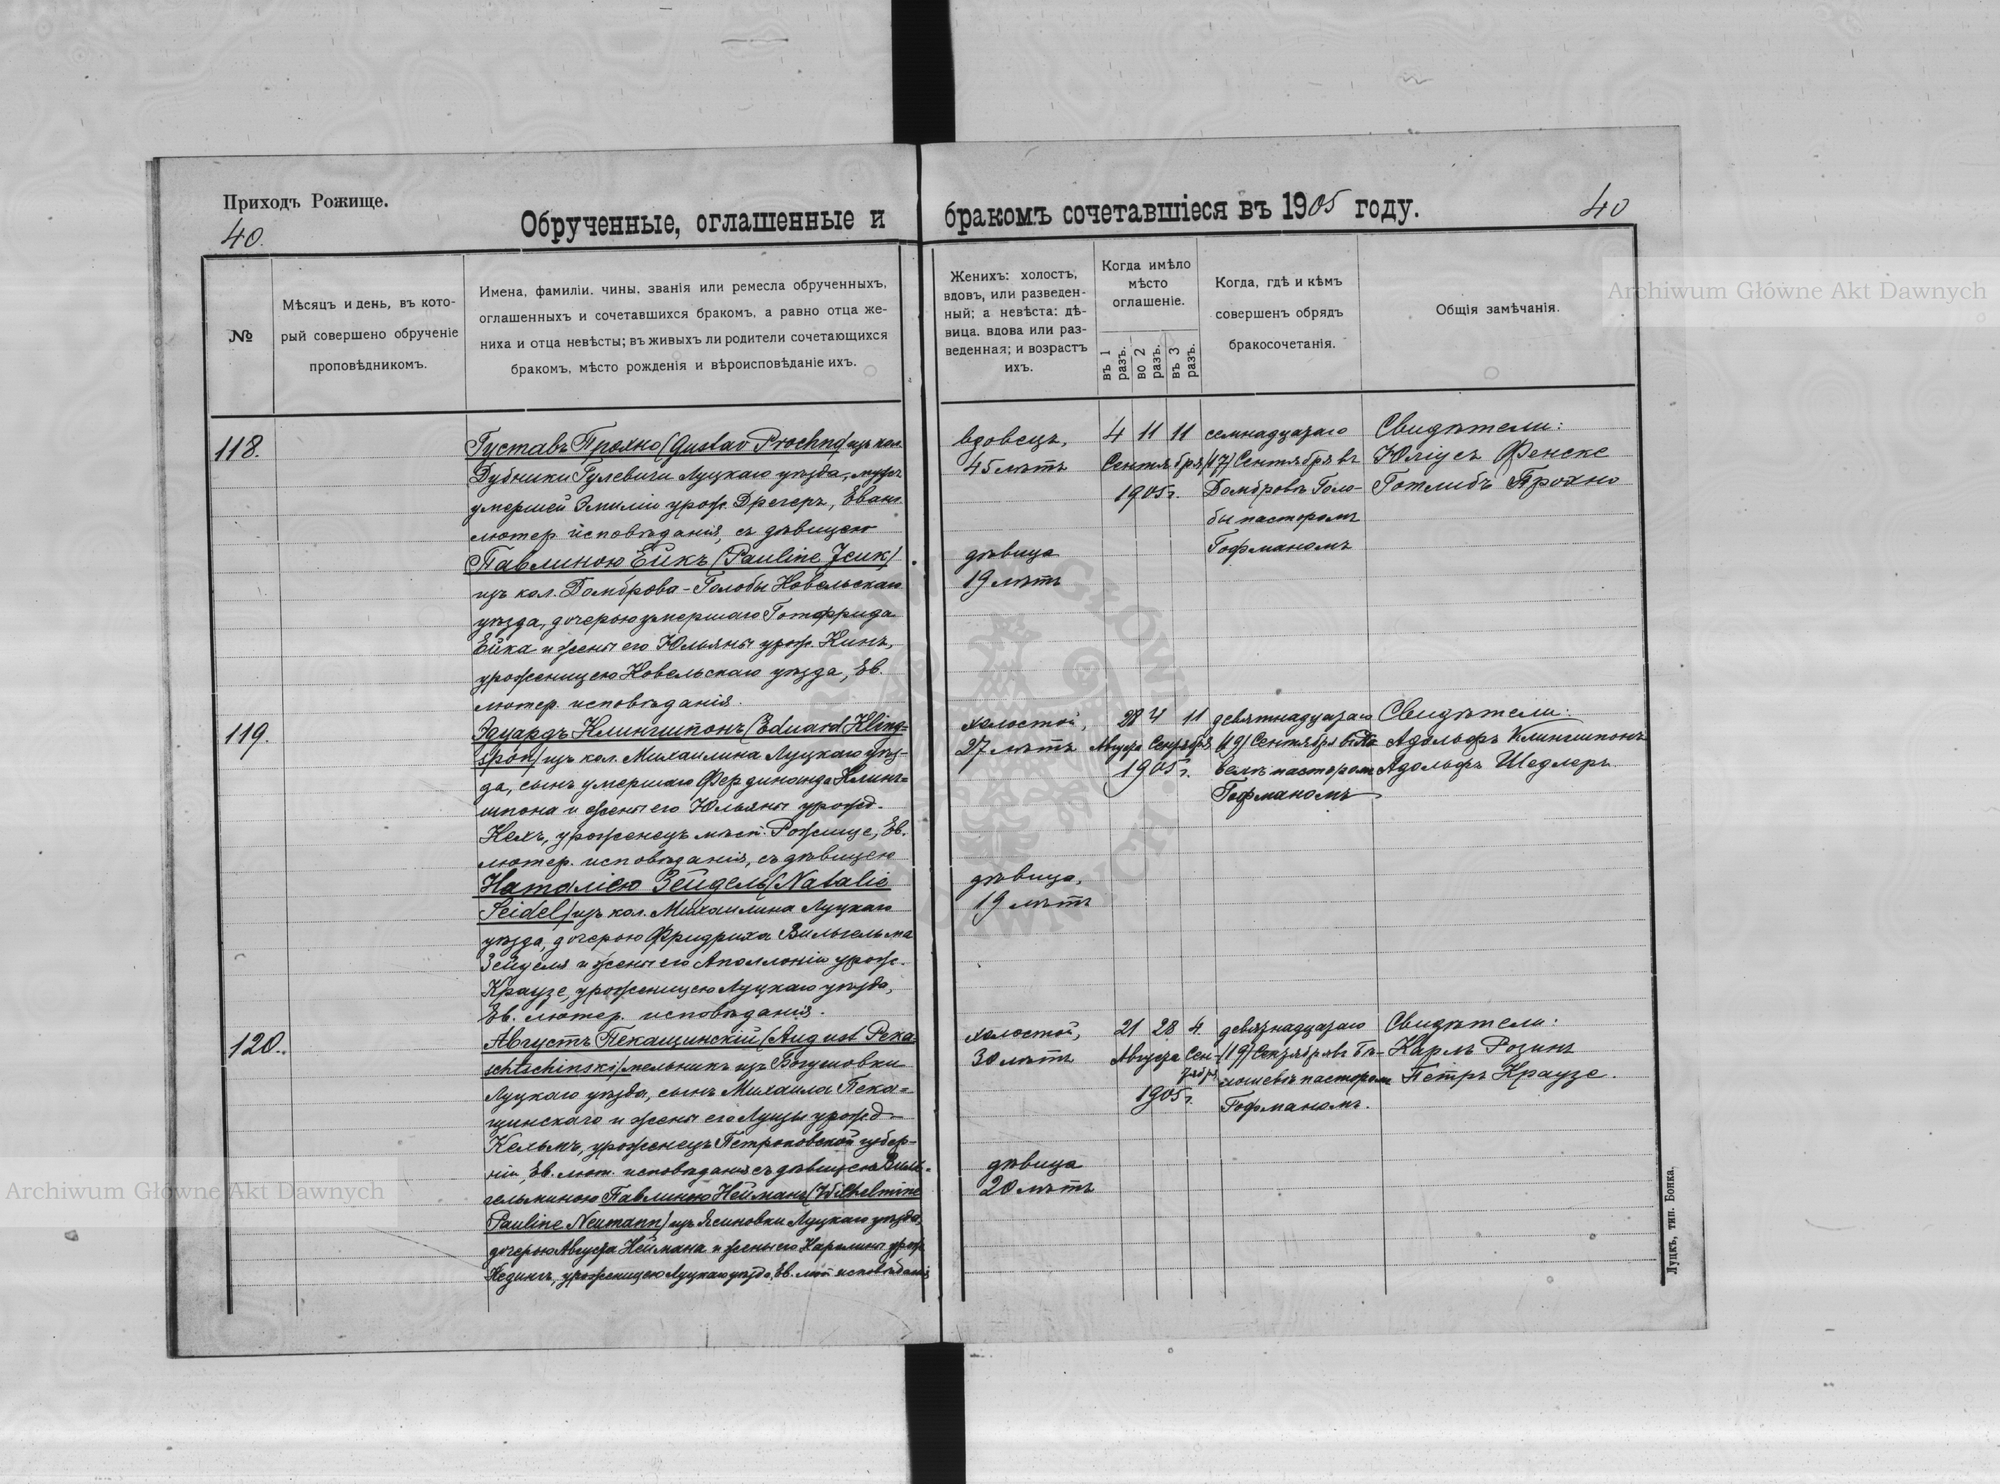 Приходъ Рожище.
40.
Обрученные, оглашенные и
бракомъ сочетавшіеся въ 1905 году.
40
№
Мѣсяцъ и день, въ кото-
рый совершено обрученіе
проповѣдникомъ.
Имена, фамиліи. чины, званія или ремесла обрученныхъ,
оглашенныхъ и сочетавшихся бракомъ, а равно отца же-
ниха и отца невѣсты; въ живыхъ ли родители сочетающихся
бракомъ, мѣсто рожденія и вѣроисповѣданіе ихъ.
Женихъ: холостъ,
вдовъ, или разведен-
ный; а невѣста: дѣ-
вица. вдова или раз-
веденная; и возрастъ
ихъ.
Когда имѣло
мѣсто
оглашеніе.
въ 1 разъ.
во 2 разъ.
въ 3 разъ.
Когда, гдѣ и кѣмъ
совершенъ обрядъ
бракосочетанія.
Общія замѣчанія.
118.
Густавъ Прохно (Gustav Prochno) изъ кол.
Дубники Гулевичи Луцкаго уѣзда, мужъ
умершей Эмиліи урож. Дрегеръ, Еванг.
лютер. исповѣданія, съ дѣвицею
Павлиною Ейкъ (Pauline Jeik)
изъ кол. Домброва-Голобы Ковельскаго
уѣзда, дочерью умершаго Готфрида
Ейка и жены его Юльяны урож. Кинъ,
уроженицею Ковельскаго уѣзда, Ев.
лютер. исповѣданія.
вдовецъ,
45 лѣтъ
дѣвица
19 лѣтъ
4 11 11
Сентября
1905 г.
семнадцатаго
(17) Сентября въ
Домбровѣ Голо-
бы пасторомъ
Гофманомъ
Свидѣтели:
Юліусъ Фенске
Готлибъ Прохно
119.
Эдуардъ Клингшпонъ (Eduard Kling-
spon) изъ кол. Михаилина Луцкаго уѣз-
да, сынъ умершаго Фердинанда Клинг-
шпона и жены его Юльяны урожд.
Кехъ, уроженецъ мѣст. Рожище, Ев.
лютер. исповѣданія, съ дѣвицею
Наталіею Зейдель (Natalie
Seidel) изъ кол. Михаилина Луцкаго
уѣзда, дочерью Фридриха Вильгельма
Зейделя и жены его Аполлоніи урож.
Краузе, уроженицею Луцкаго уѣзда,
Ев. лютер. исповѣданія.
холостой,
27 лѣтъ
дѣвица,
19 лѣтъ
28 4 11
Августа Сентября
1905 г.
девятнадцатаго
(19) Сентября
пасторомъ
Гофманомъ
Свидѣтели:
Адольфъ Клингшпонъ
Адольфъ Шедлеръ.
120.
Августъ Пекащинскій (August Peka-
schtschinski) мельникъ изъ Богушовки
Луцкаго уѣзда, сынъ Михаила Пека-
щинскаго и жены его Луизы урожд.
Кельмъ, уроженецъ Петроковской губер-
ніи, Ев. лют. исповѣданія съ дѣвицею Виль-
гельминою Павлиною Нейманъ (Wilhelmine
Pauline Neumann) изъ Ясиновки Луцкаго уѣзда,
дочерью Августа Неймана и жены его Каролины урож.
уроженицею Луцкаго уѣзда, Ев. лют. исповѣданія
холостой,
30 лѣтъ
дѣвица
20 лѣтъ
21 28 4
Августа Сен-
тября
1905 г.
девятнадцатаго
(19) Сентября въ
пасторомъ
Гофманомъ.
Свидѣтели:
Карлъ Розинъ
Петръ Краузе.
Луцкъ, тип. Бонка.
Archiwum Główne Akt Dawnych
Archiwum Główne Akt Dawnych